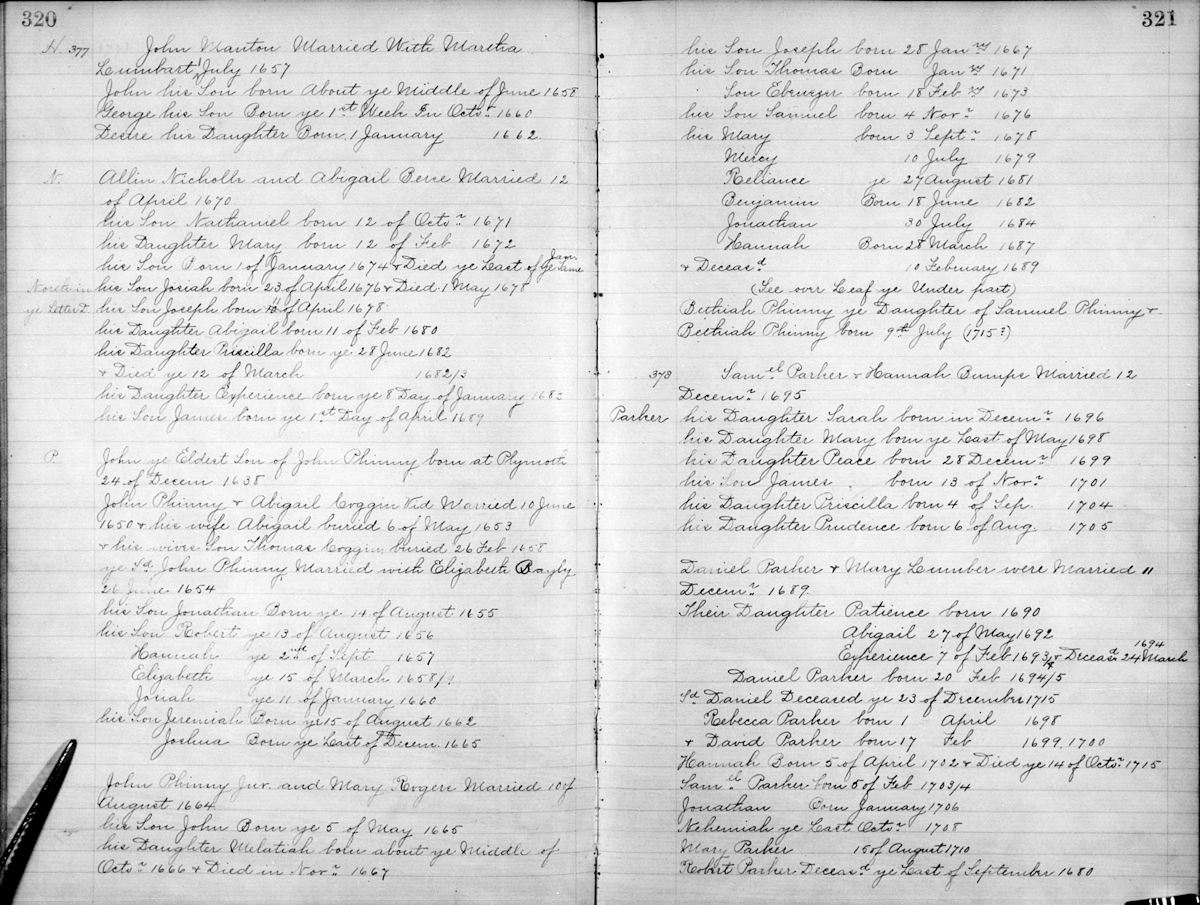 320
H. 377 John Manton Married With Martha
Lumbart 1 July 1657
John his Son born About ye Middle of June 1658
George his Son Born ye 1st Week In Octr 1660
Desire his Daughter Born 1 January 1662.
N. Allin Nicholls and Abigail Berse Married 12
of April 1670
his Son Nathaniel born 12 of Octr 1671
his Daughter Mary born 12 of Feb 1672
his Son Born 1 of January 1674 & Died ye Last of ye Same Jan.
in his Son Josiah born 23 of April 1676 & Died 1 May 1678
ye Letter his Son Joseph born of April 1678
his Daughter Abigail born 11 of Feb 1680
his Daughter Priscilla born ye 28 June 1682
& Died ye 12 of March 1682/3
his Daughter Experience born ye 8 Day of January 1683
his Son James born ye 1st Day of April 1689
P. John ye Eldest Son of John Phinny born at Plymoth
24 of Decem 1638
John Phinny & Abigail Coggin Wid Married 10 June
1650 & his wife Abigail buried 6 of May 1653
& his wives Son Thomas Coggin buried 26 Feb 1658
ye Sd John Phinny Married with Elizabeth Bayly
26 June 1654
his Son Jonathan Born ye 14 of August 1655
his Son Robert ye 13 of August 1656
Hannah ye 2nd of Sept 1657
Elizabeth ye 15 of March 1658/9
Josiah ye 11 of January 1660
his Son Jeremiah Born ye 15 of August 1662
Joshua Born ye Last of Decem. 1665
John Phinny Jur. and Mary Rogers Married 10 of
August 1664
his Son John Born ye 5 of May 1665
his Daughter Melatiah born about ye Middle of
Octr 1666 & Died in Novr 1667
321
his Son Joseph born 28 Janry 1667
his Son Thomas Born Janry 1671
Son Ebenezer born 18 Febry 1673
his Son Samuel born 4 Novr 1676
his Mary born 3 Septr 1678
Mercy 10 July 1679
Reliance ye 27 August 1681
Benjamin Born 18 June 1682
Jonathan 30 July 1684
Hannah Born 28 March 1687
& Deceasd 10 February 1689
(See over Leaf ye Under part)
Bethiah Phinny ye Daughter of Samuel Phinny &
Bethiah Phinny born 9th July (1715?)
373 Samel Parker & Hannah Bumps Married 12
Decemr 1695
Parker his Daughter Sarah born in Decemr 1696
his Daughter Mary born ye Last of May 1698
his Daughter Peace born 28 Decemr 1699
his Son James born 13 of Novr 1701
his Daughter Priscilla born 4 of Sep. 1704
his Daughter Prudence born 6 of Aug. 1705
Daniel Parker & Mary Lumber were Married 11
Decemr 1689.
Their Daughter Patience born 1690
Abigail 27 of May 1692
Experience 7 of Feb 1693/4 & Deceasd 24 March 1694
Daniel Parker born 20 Feb 1694/5
Sd Daniel Deceased ye 23 of December 1715
Rebecca Parker born 1 April 1698
& David Parker born 17 Feb 1699.1700
Hannah Born 5 of April 1702 & Died ye 14 of Octr 1715
Samel Parker born 5 of Feb 1703/4
Jonathan born January 1706
Nehemiah ye Last Octr 1708
Mary Parker 15 of August 1710
Robert Parker Deceasd ye Last of September 1680